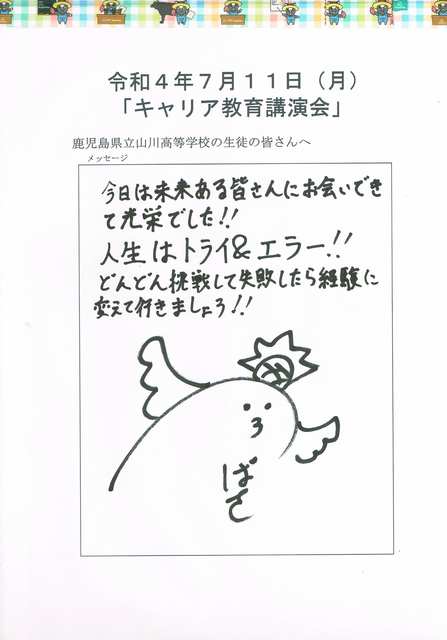 令和４年７月１１日（月）
「キャリア教育講演会」
鹿児島県立山川高等学校の生徒の皆さんへ
メッセージ
今日は未来ある皆さんにお会いでき
て光栄でした!!
人生はトライ&エラー!!
どんどん挑戦して失敗したら経験に
変えて行きましょう!!
ばて